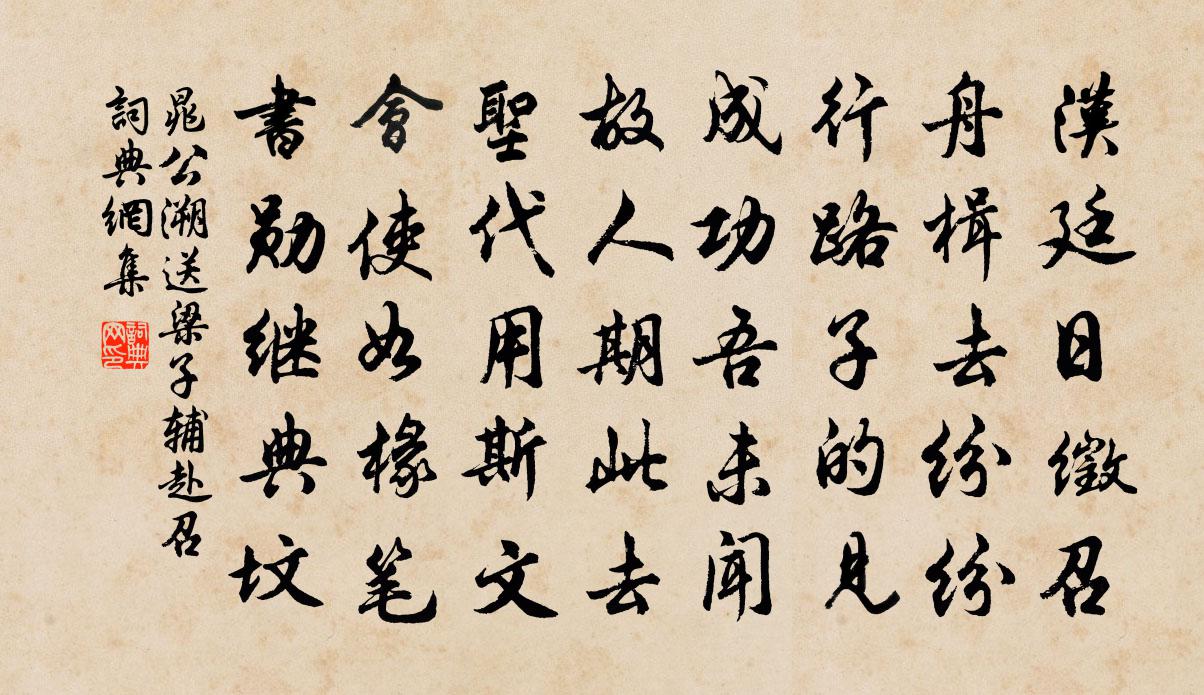 漢廷日徵召
舟楫去紛紛
行路子的見
成功吾未聞
故人期此去
聖代用斯文
會使如椽笔
書勋继典坟
晁公溯送梁子辅赴召
詞典網集
詞典网印